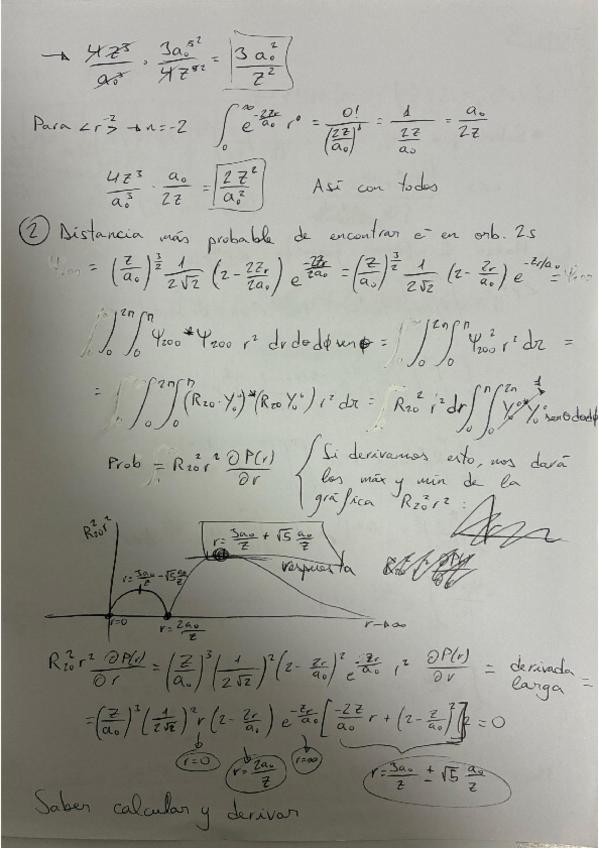 → 4Z³/a₀³ · 3a₀⁵/4Z⁵ = 3a₀²/Z²
Para <r⁻²> → n=-2 ∫₀^∞ e^(-2Zr/a₀) r⁰ = 0!/(2Z/a₀)¹ = 1/(2Z/a₀) = a₀/2Z
4Z³/a₀³ · a₀/2Z = 2Z²/a₀² Así con todos
② Distancia más probable de encontrar e⁻ en orb. 2s
= (Z/a₀)^(3/2) 1/(2√2) (2 - 2Zr/2a₀) e^(-2Zr/2a₀) = (Z/a₀)^(3/2) 1/(2√2) (2 - Zr/a₀) e^(-Zr/a₀) =
∫₀∫₀^2π∫₀^π Ψ₂₀₀* Ψ₂₀₀ r² dr dθ dϕ senθ = ∫₀∫₀^2π∫₀^π Ψ₂₀₀² r² dr =
= ∫₀∫₀^2π∫₀^π (R₂₀·Y₀⁰)*(R₂₀ Y₀⁰) r² dr = ∫ R₂₀² r² dr ∫₀^π∫₀^2π Y₀⁰* Y₀⁰ senθ dθ dϕ 1
Prob = R₂₀² r² ∂P(r)/∂r { Si derivamos esto, nos dará
los máx y min de la
gráfica R₂₀² r² :
R₂₀² r²
r = 3a₀/Z + √5 a₀/Z
respuesta
r = 3a₀/Z - √5 a₀/Z
r=0
r = 2a₀/Z
r→∞
R₂₀² r² ∂P(r)/∂r = (Z/a₀)³ (1/(2√2))² (2 - Zr/a₀)² e^(-Zr/a₀) r² ∂P(r)/∂r = derivada larga =
= (Z/a₀)³ (1/(2√2))² r (2 - Zr/a₀) e^(-Zr/a₀) [-2Z/a₀ r + (2 - Z/a₀)²] = 0
r=0
r = 2a₀/Z
r=∞
r = 3a₀/Z ± √5 a₀/Z
Saber calcular y derivar